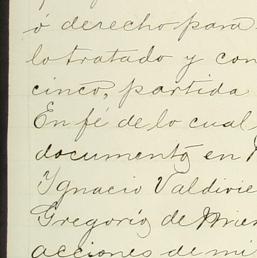 ó derecho para
lo tratado y con
cinco, partida
En fé de lo cual
documento, en
Ygnacio Valdivie
Gregorio, de
acciones de mi